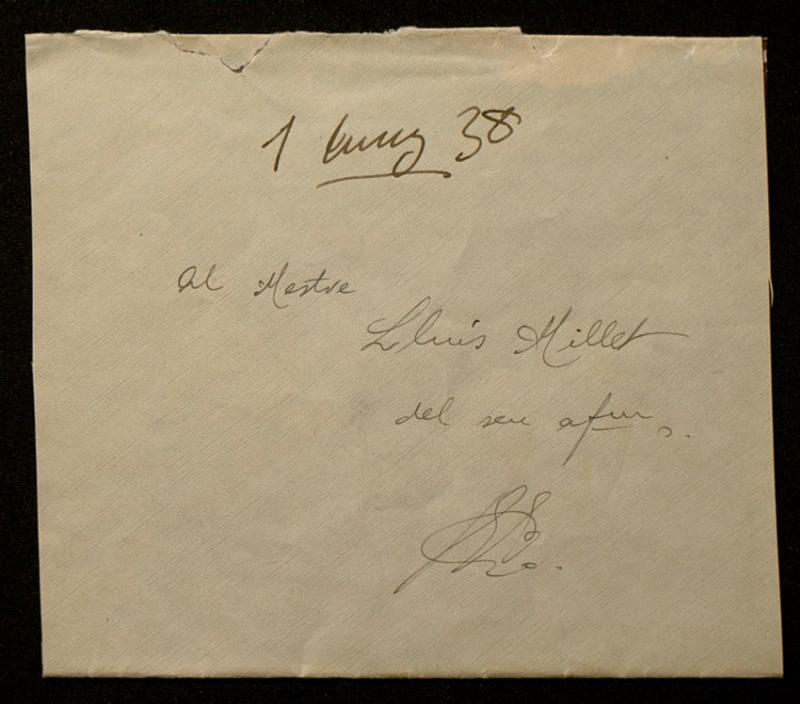 1 Juny 38
Al Mestre
Lluis Millet
del seu afm